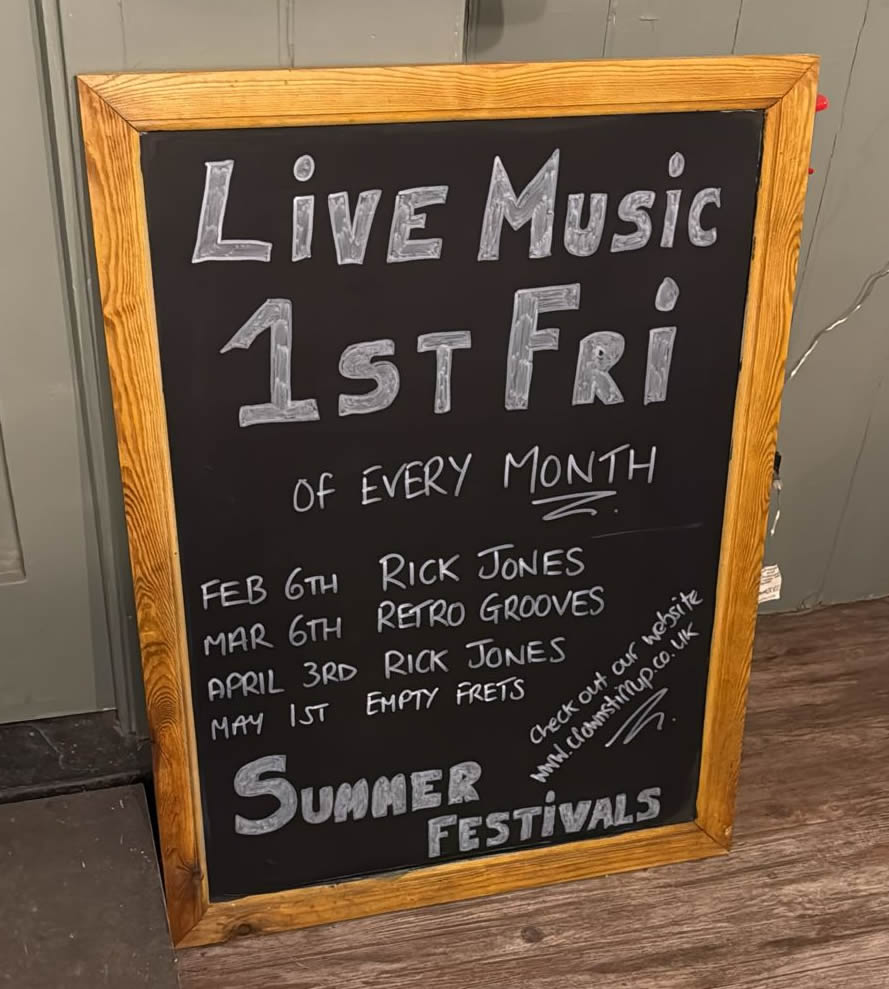 LiVE MUSiC
1ST FRi
OF EVERY MONTH
FEB 6TH RICK JONES
MAR 6TH RETRO GROOVES
APRIL 3RD RICK JONES
MAY 1ST EMPTY FRETS
Check out our website
www.clownstirrup.co.uk
SUMMER
FESTiVALS